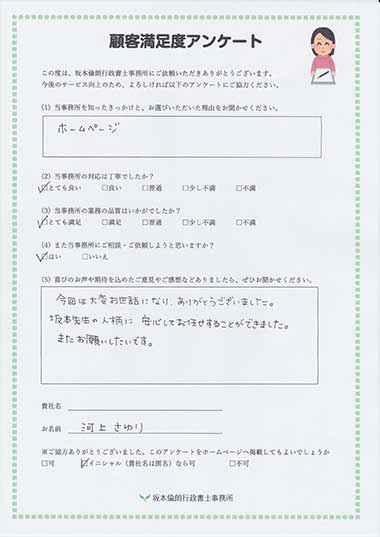 顧客満足度アンケート
この度は、坂本倫朗行政書士事務所にご依頼いただきありがとうございます。
今後のサービス向上のため、よろしければ以下のアンケートにご協力ください。
(1) 当事務所を知ったきっかけと、お選びいただいた理由をお聞かせください。
ホームページ
(2) 当事務所の対応は丁寧でしたか?
☑とても良い □良い □普通 □少し不満 □不満
(3) 当事務所の業務の品質はいかがでしたか?
☑とても満足 □満足 □普通 □少し不満 □不満
(4) また当事務所にご相談・ご依頼しようと思いますか?
☑はい □いいえ
(5) 喜びのお声や期待を込めたご意見やご感想などありましたら、ぜひお聞かせください。
今回は大変お世話になり、ありがとうございました。
坂本先生の人柄に安心してお任せすることができました。
またお願いしたいです。
貴社名
お名前 河上 さゆり
※ご協力ありがとうございました。このアンケートをホームページへ掲載してもよいでしょうか
□可 ☑イニシャル(貴社名は匿名)なら可 □不可
坂本倫朗行政書士事務所